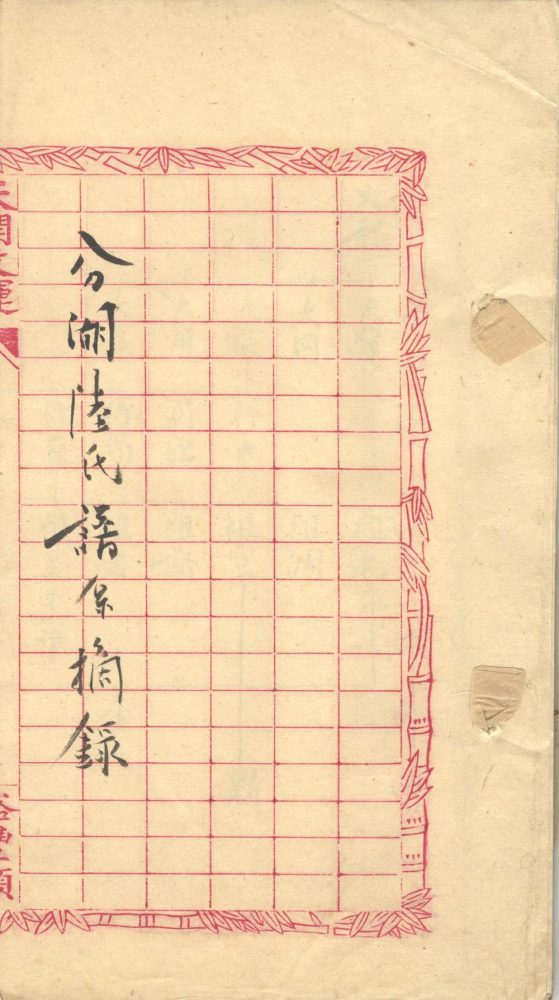 分湖陸氏譜系摘錄